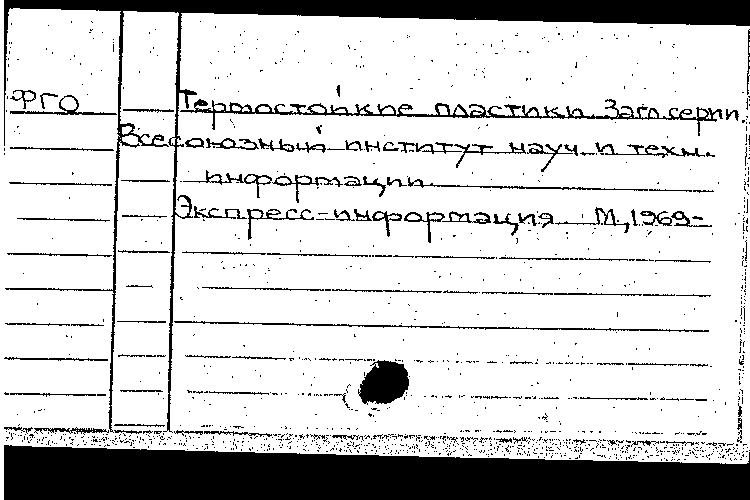 ФГО Термостойкие пластики. Загл. серии.
Всесоюзный институт науч. и техн.
информации.
Экспресс-информация. М., 1969-